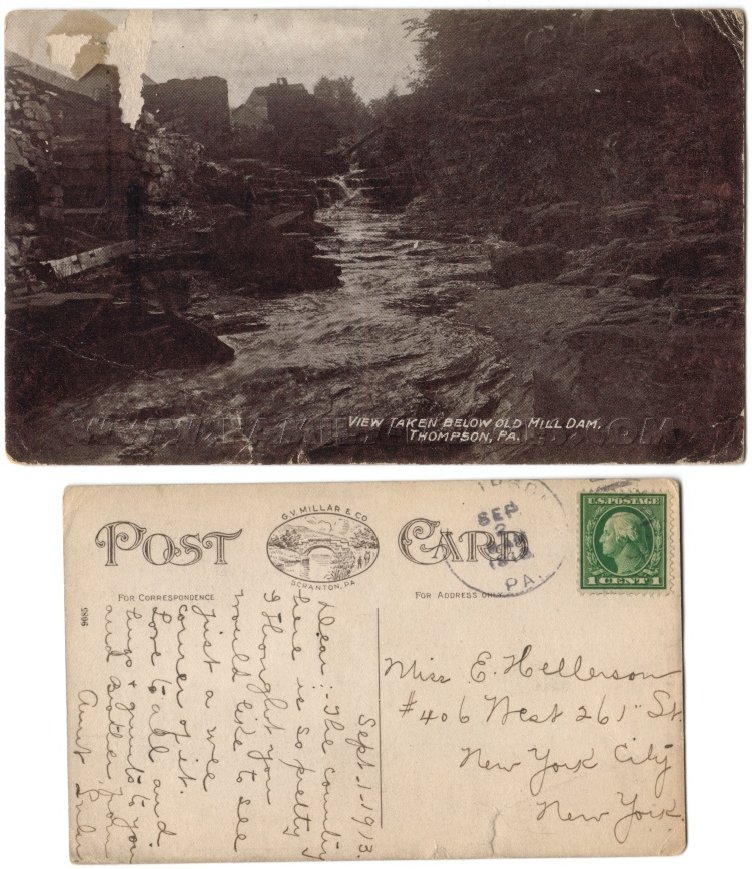 VIEW TAKEN BELOW OLD MILL DAM.
THOMPSON, PA.
POST CARD
G.V. MILLAR & CO
SCRANTON, PA.
FOR CORRESPONDENCE
FOR ADDRESS ONLY
9085
SEP
2
PA.
U.S. POSTAGE
1 CENT 1
Sept. 1-1913.
Dear :- The country
here is so pretty
I thought you
would like to see
just a wee
corner of it.
Love to all and
hugs & to you
and Brother, from
Aunt
Miss E. Hellerson
#406 West 261" St.
New York City
New York.